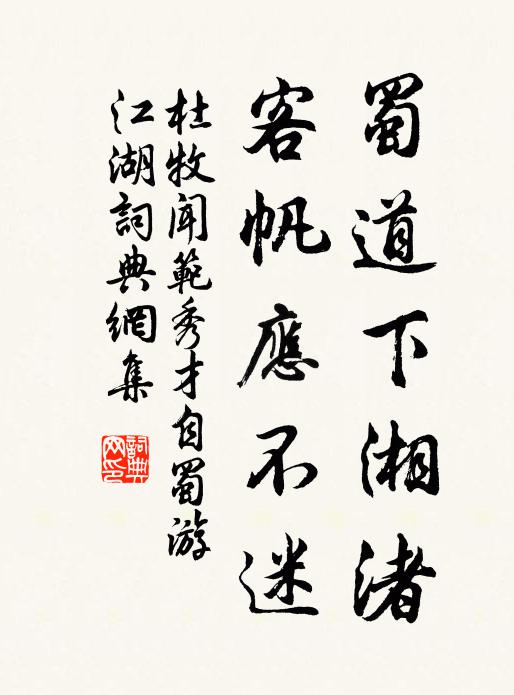 蜀道下湘渚
客帆應不迷
杜牧聞範秀才自蜀游
江湖詞典網集
詞典网印